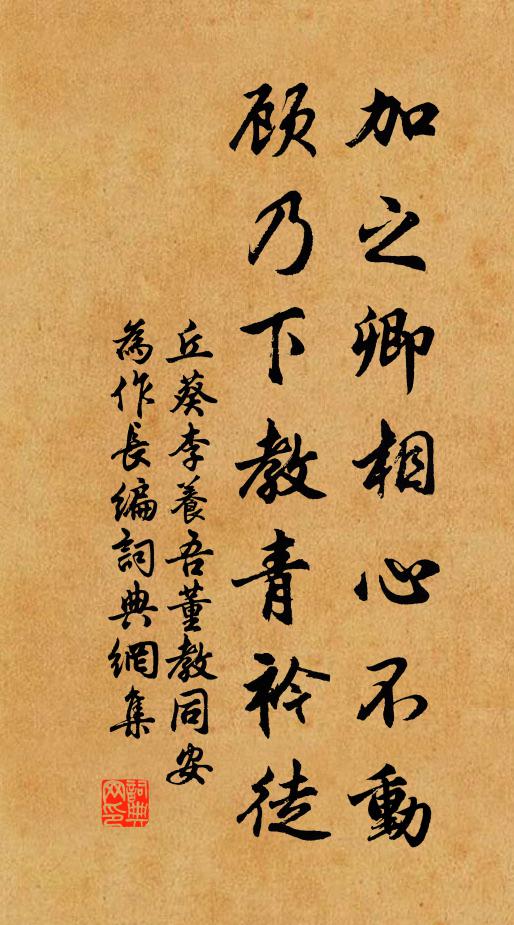 加之卿相心不動
顾乃下教青衿徒
丘葵李養吾董教同安
為作長编詞典網集
詞典
网印